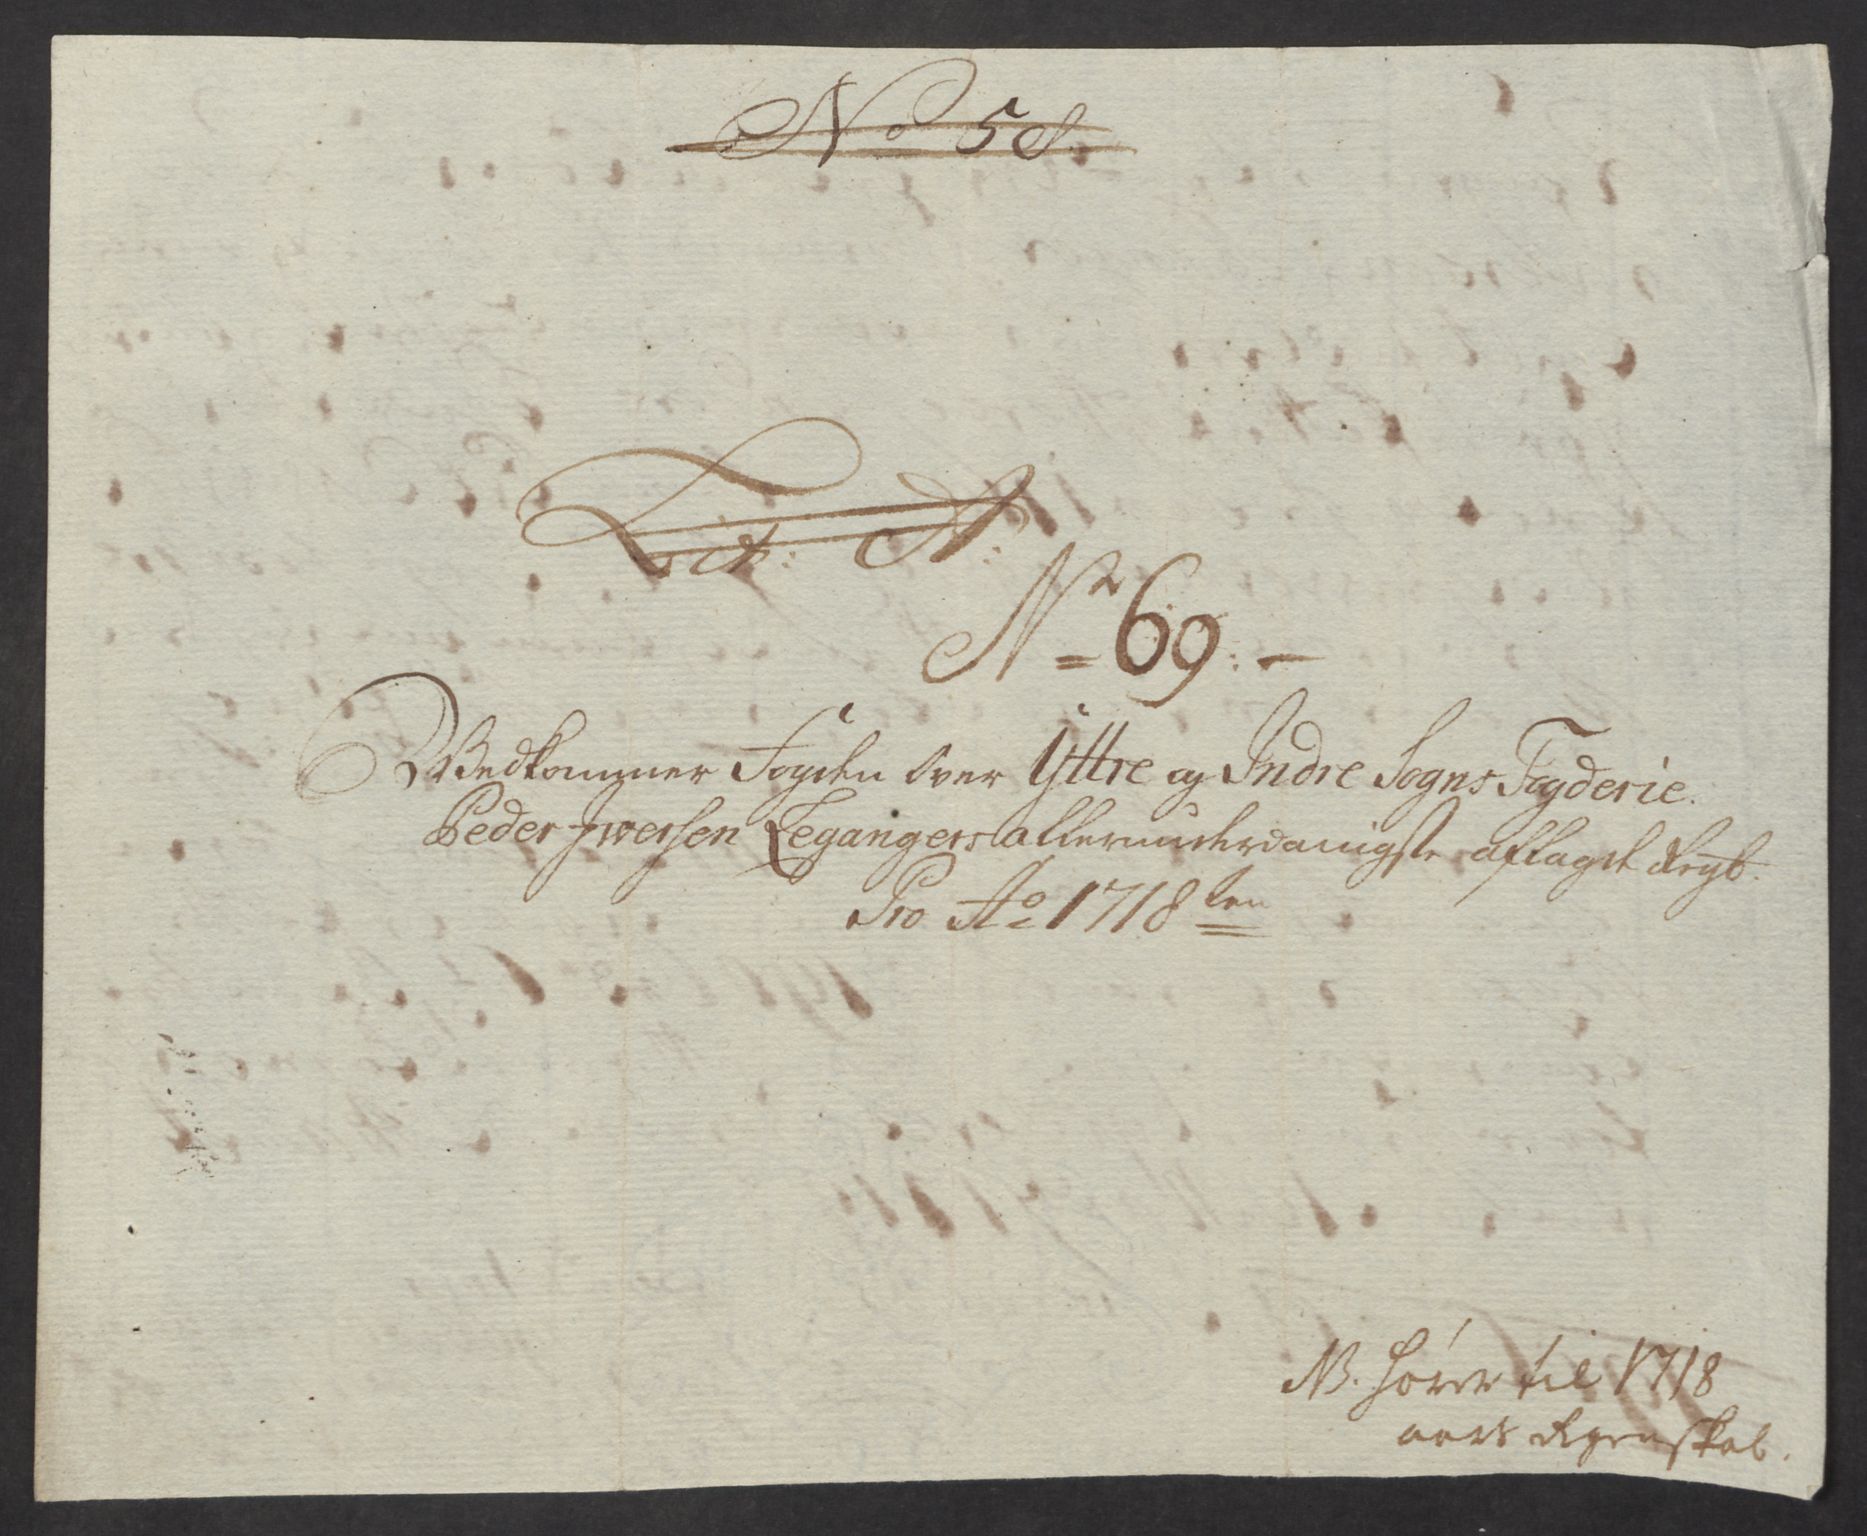 No 58.
Litr: A:
No 69:-
Vedkommer Fogden Over Yttre og Indre Sogns Fogderie.
Peder Iwersen Legangers allerunderdanigste aflagde Regb:
Pro Ao 1718ten
NB. hører til 1718
aars Regenskab.